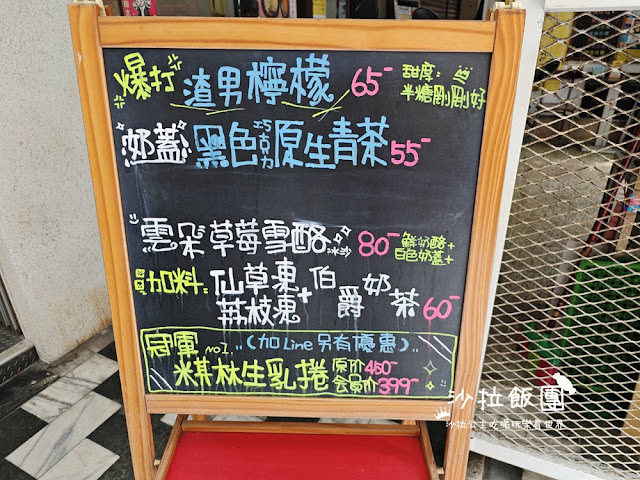 爆打渣男檸檬 65-
甜度:
半糖剛剛好
奶蓋 黑色巧克力原生青茶 55-
雲朵草莓雪酪冰沙 80- 鮮奶酪+
白色奶蓋+
加料 仙草凍+伯爵奶茶 60-
荔枝凍
冠軍 No1...(加Line另有優惠)..
棋林生乳捲 原價450-
会员价399-
沙拉飯團
沙拉公主吃喝玩樂看世界